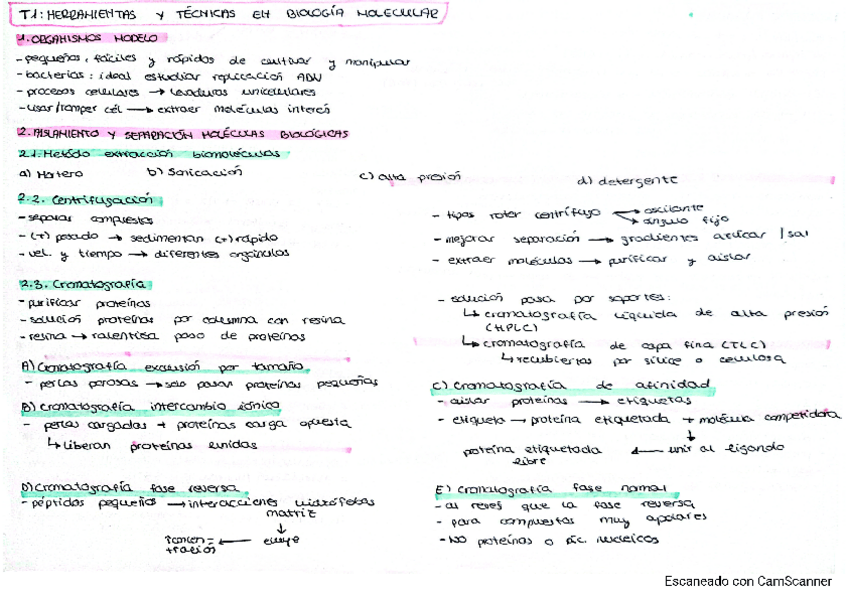 T.1: HERRAMIENTAS Y TÉCNICAS EN BIOLOGÍA MOLECULAR
1. ORGANISMOS MODELO
- pequeños, fáciles y rápidos de cultivar y manipular
- bacterias: ideal estudiar replicación ADN
- procesos celulares → levaduras unicelulares
- lisar/romper cél → extraer moléculas interés
2. AISLAMIENTO Y SEPARACIÓN MOLÉCULAS BIOLÓGICAS
2.1. Método extracción biomoléculas
a) Mortero b) Sonicación c) alta presión d) detergente
2.2. Centrifugación
- separar compuestos
- (+) pesado → sedimentan (+) rápido
- vel. y tiempo → diferentes orgánulos
- tipos rotor centrífugo → oscilante
→ ángulo fijo
- mejorar separación → gradientes azúcar / sal
- extraer moléculas → purificar y aislar
2.3. Cromatografía
- purificar proteínas
- solución proteínas por columna con resina
- resina → ralentiza paso de proteínas
- solución pasa por soportes:
↳ cromatografía líquida de alta presión
(HPLC)
↳ cromatografía de capa fina (TLC)
↳ recubiertas por sílice o celulosa
A) Cromatografía exclusión por tamaño
- perlas porosas → solo pasan proteínas pequeñas
B) Cromatografía intercambio iónico
- perlas cargadas + proteínas carga opuesta
↳ liberan proteínas unidas
C) Cromatografía de afinidad
- aislar proteínas → etiquetas
- etiqueta → proteína etiquetada + molécula competidora
↓
proteína etiquetada ← unir al ligando
libre
D) Cromatografía fase reversa
- péptidos pequeños → interacciones hidrófobas
matriz
↓
← eluye
E) Cromatografía fase normal
- al revés que la fase reversa
- para compuestos muy apolares
- NO proteínas o ác. nucleicos
Escaneado con CamScanner